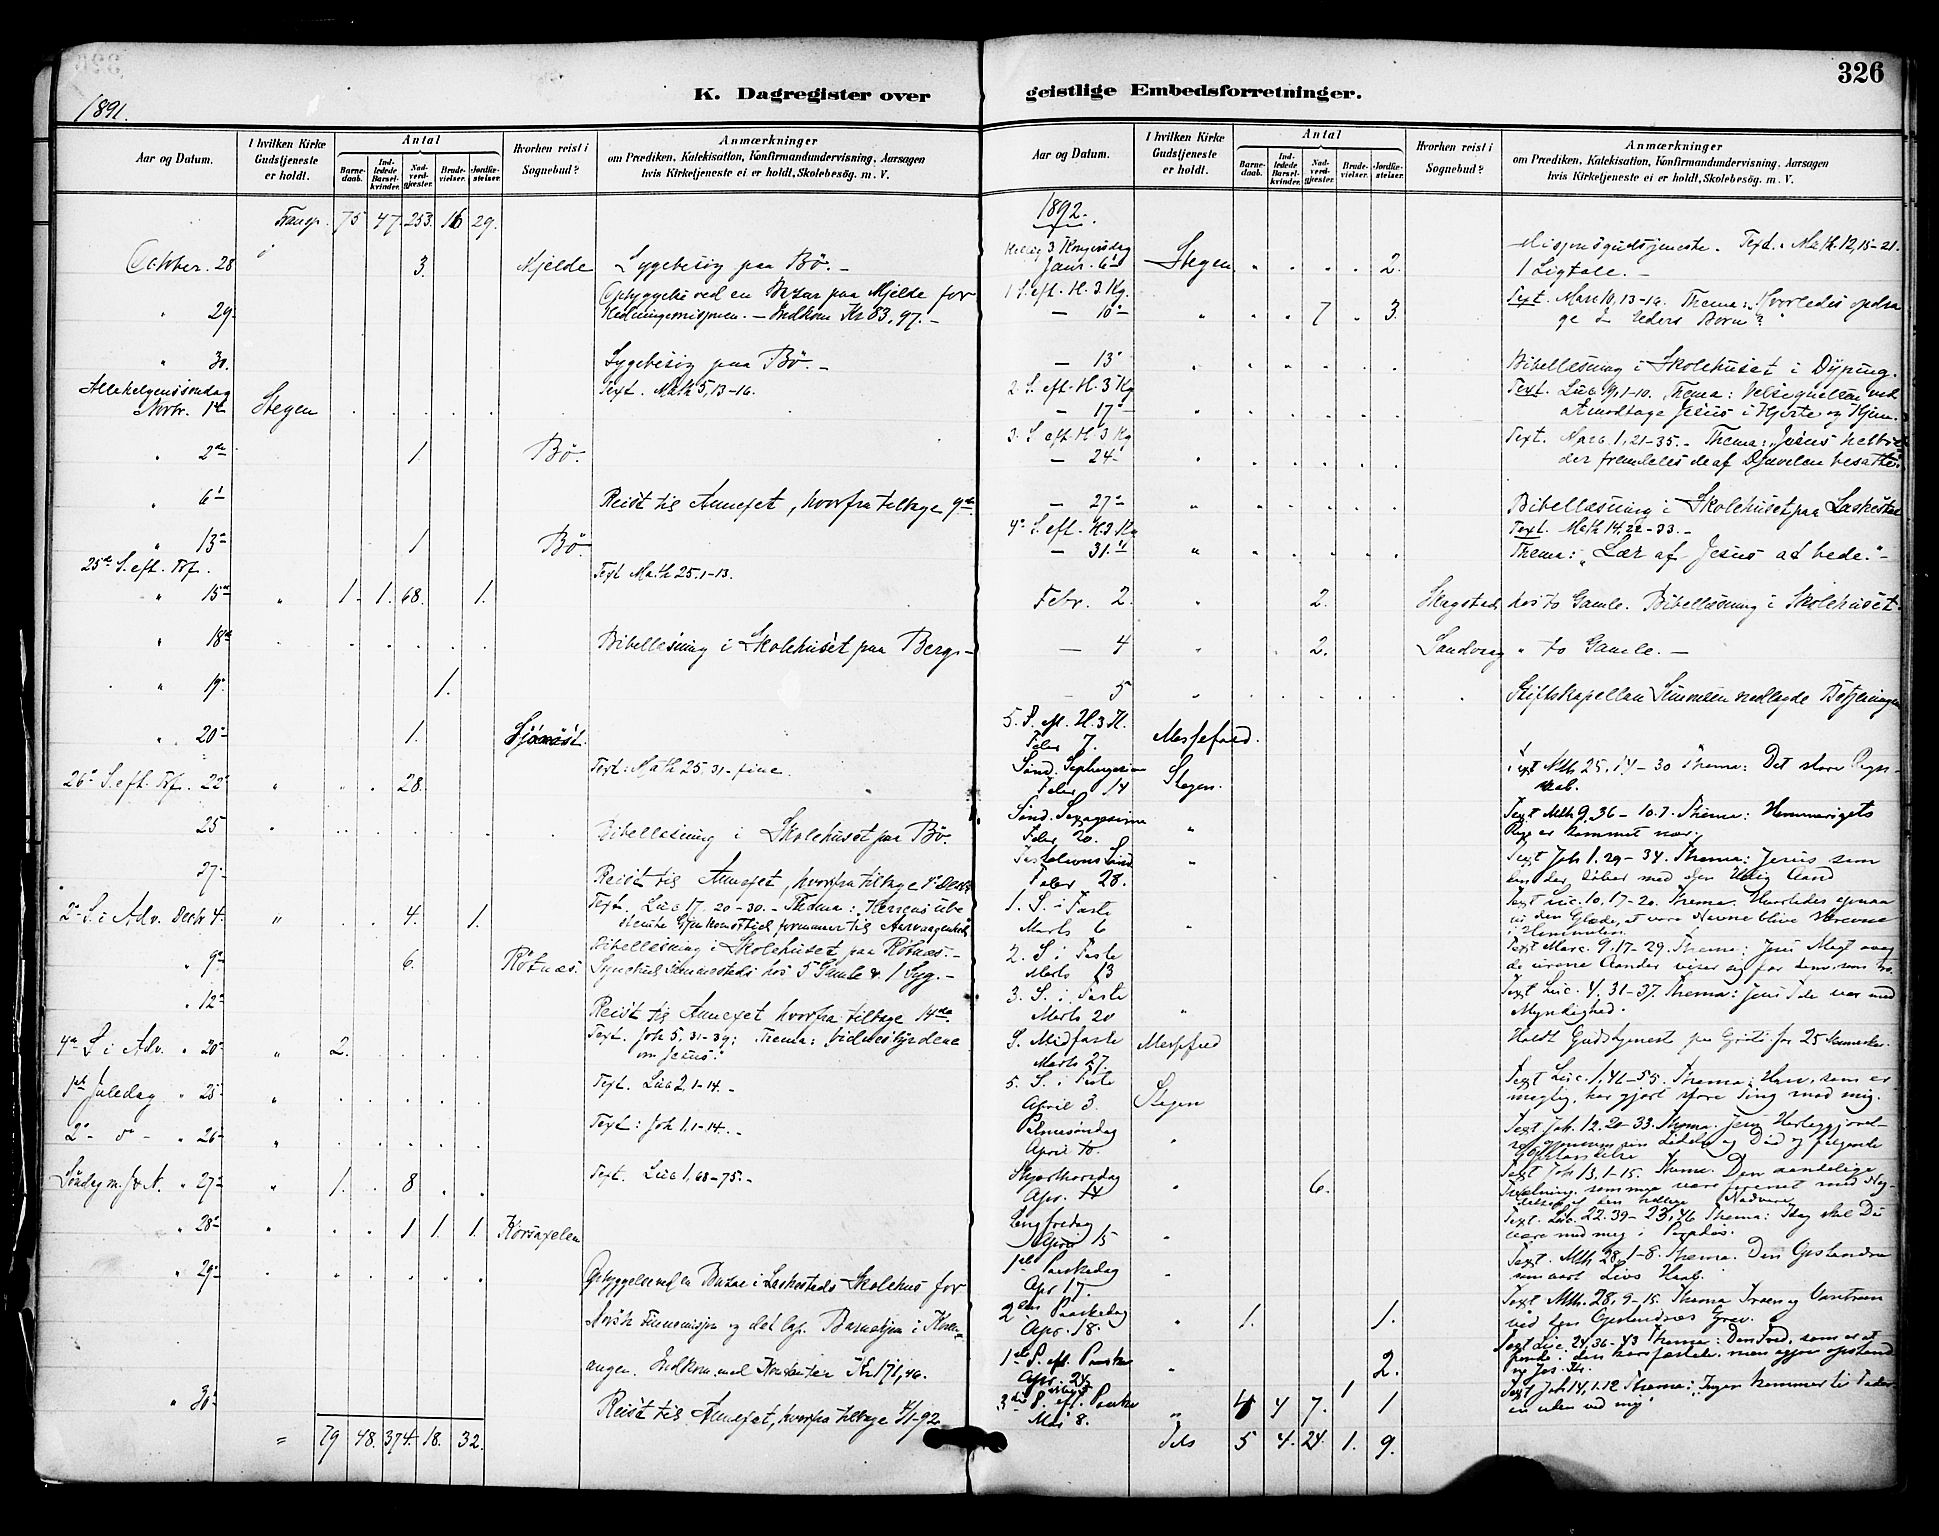 326
K. Dagregister over geistlige Embedsforretninger.
1891.
Aar og Datum.
I hvilken Kirke Gudstjeneste er holdt.
Antal
Barnedaab.
Indledede Barselkvinder.
Nadverdgjester.
Brudevielser.
Jordfæstelser.
Hvorhen reist i Sognebud?
Anmærkninger
om Prædiken, Katekisation, Konfirmandundervisning, Aarsagen
hvis Kirketjeneste ei er holdt, Skolebesøg. m. V.
Transp. 75 47. 253. 16 29.
October. 28 3. Mjelde Sygebesøg paa Bø. -
" 29. Opbyggelse ved en Bazar paa Mjelde for
Redningsmisjonen. - Indkom Kr 83,97. -
" 30. Sygebesøg paa Bø. -
Allehelgenssøndag
Novbr. 1ste Stegen Text. Math 5, 13-16.
" 2den 1. Bø.
" 6te Reist til Annexet, hvorfra tilbage 9de
" 13de 1 Bø.
25de S. eft. Tref.
" 15de " 1. 1. 68. 1. Text Math 25. 1-13.
" 18de Bibellæsning i Skolehuset paa Berg. -
" 19. 1.
" 20 1.
26. S. eft. Tref. 22 " 28. Text: Math 25, 31-fine.
25 " Bibellæsning i Skolehuset paa Bø.
27. Reist til Annexet, hvorfra tilbage 1ste Decbr
2. S. i Adv. Decbr 4. " 4. 1. Text. Luc 17. 20-30. - Thema: Herrens
" 9de 6. Røtnæs. Bibellæsning i Skolehuset paa Røtnæs. -
hos 5 Gamle & 1 Syg. -
" 12 Reist til Annexet hvorfra tilbage 14de.
4de S. i Adv. " 20 " 2. Text. Joh 5, 31-39: Thema: Vidnesbyrdene
om Jesus."
1ste Juledag " 25 " Text. Luc 2, 1-14. -
2. - d - " 26 " Text: Joh 1. 1-14. -
Søndag m. J & N. " 27 " 1. 8 Text. Luc 1, 68-75. -
" 28 " 1 1. 1. Korsaxelen
" 29 Opbyggelse ved en Bazar i Laskestads Skolehus for
Norsk Finnemisjon og det Barnehjem i
angen. Indkom med Kontanter Kr 171,46.
" 30 Reist til Annexet, hvorfra tilbage 4/1-92
" 79 48. 374. 18. 32.
Aar og Datum.
I hvilken Kirke Gudstjeneste er holdt.
Antal
Barnedaab.
Indledede Barselkvinder.
Nadverdgjester.
Brudevielser.
Jordfæstelser.
Hvorhen reist i Sognebud?
Anmærkninger
om Prædiken, Katekisation, Konfirmandundervisning, Aarsagen
hvis Kirketjeneste ei er holdt, Skolebesøg. m. V.
1892.
Hellig 3 Kongersdag
Janr. 6te Stegen 2. Misjonsgudstjeneste. Text. Math. 12, 15-21.
1 Ligtale. -
1 S. eft. H. 3 Kg.
- 10 " 7 3. Text. Marc 10, 13-16. Thema: "Hvorledes opdra
ge I Eders Børn?"
- 13 " Bibellæsning i Skolehuset i Dyping.
2. S. eft. H. 3 Kg
- 17 " Text. Luc 19, 1-10. Thema: Velsignelsen ved
at modtage Jesus i Hjerte og Hjem.
3. S. eft H 3 Kg
- 24 " Text. Marc. 1, 21-35. - Thema: "Jesus
der fremdeles de af Djævelen besatte."
- 27 " Bibellæsning i Skolehuset paa Laskestad
4. S. eft. H 3 Kg
- 31 " Text. Math 14, 22-33. -
Thema: "Lær af Jesus at bede." -
Febr. 2. " 2. Skagstad hos to Gamle. Bibellæsning i Skolehuset.
- 4 " 2. Sandvaag " to Gamle. -
- 5 " Stiftskapellan nedlagde Betjeningen
5. S. ef. H. 3 K.
Febr 7. Messeford.
Sønd. Septuagesima
Febr 14 Stegen. Text Mth. 25, 14-30 Thema: Det store Regn-
skab.
Sønd. Sexagesima
Febr 20. " Text Mth 9, 36-10.7. Thema: Himmeriges
Rige er kommet nær.
Fastelavns Sønd
Febr 28. " Text Joh 1. 29-34. Thema: Jesus som
den der døber med den Hellig Aand
1. S. i Faste
Marts 6 " Text Luc. 10. 17-20. Thema.
den Glæde, at vore Navne blive skrevne
i Himmelen.
2. S i Faste
Marts 13 Text Marc. 9. 17-29. Thema: Jesu Magt over
de urene Aander
3. S. i Faste
Marts 20 " Text Luc. 4. 31-37. Thema: Jesu Tale var med
Myndighed.
S. Midfaste
Marts 27. Messefjord Holdt Gudstjeneste paa for 25 Mennesker.
5. S. i Faste
April 3. Stegen Text Luc. 1, 46-55. Thema: Han, som er
mægtig, har gjort store Ting mod mig.
Palmesøndag
April 10. " Text Joh. 12. 20-33. Thema. Jesu
Skjærthorsdag
Apr. 14 " 6. Text Joh 13, 1-15. Thema. Den aandelige
Langfredag
Apr 15 " Text. Luc. 22. 39-23, 46 Thema: Idag skal Du
være med mig i Paradis.
1ste Paaskedag
Apr 17. " Text. Mth. 28, 1-8. Thema. Den Opstandne
som vort Livs Haab.
2den Paaskedag
Apr. 18. " 1. 1. Text Mth. 28, 9-15. Thema Troen og Vantroen
ved den Opstandnes Grav.
1ste S. eft. Paaske
Apr. 24 " 2. Text Luc. 24, 36-43 Thema: Den Fred, som er at
3die S. ef. Paaske
Mai 8. " 4 4 7. 1 1 Text Joh 14, 1-12 Thema: "Ingen kommer til Fader-
en uden ved mig"
5 4. 24. 1. 9.